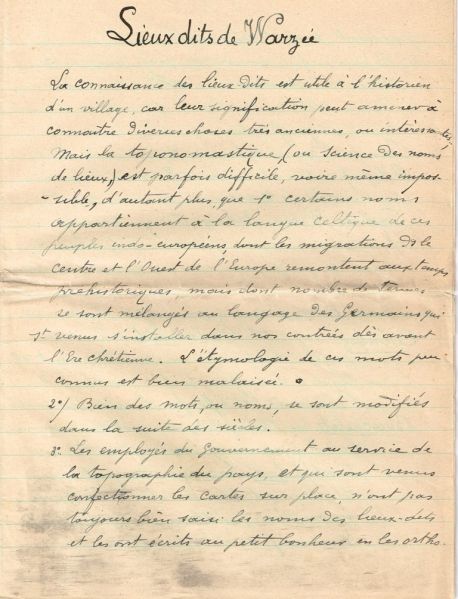 Lieux dits de Warzée
La connaissance des lieux-dits est utile à l'historien
d'un village, car leur signification peut amener à
connaître diverses choses très anciennes, ou intéressantes;
Mais la toponomastique, (ou science des noms
de lieux,) est parfois difficile, voire même impos-
sible, d'autant plus, que 1° certains noms
appartiennent à la langue celtique de ces
peuples indo-européens dont les migrations ds le
centre et l'Ouest de l'Europe remontent aux temps
préhistoriques, mais dont nombre de termes
se sont mélangés au langage des Germains qui
st venus s'installer dans nos contrées dès avant
l'Ere chrétienne. L'étymologie de ces mots peu
connus est bien malaisée.
2°/ Bien des mots, ou noms, se sont modifiés
dans la suite des siècles.
3° Les employés du Gouvernement au service de
la topographie du pays, et qui sont venus
confectionner les cartes sur place, n'ont pas
toujours bien saisi les noms des lieux-dits
et les ont écrits au petit bonheur en les ortho-